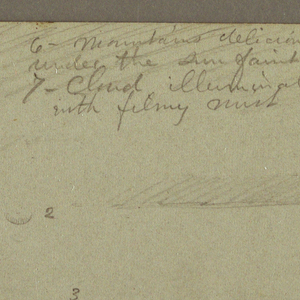 6- Mountains delicio
under the sun faint
7- Cloud illuminat
with filmy mist
2
3